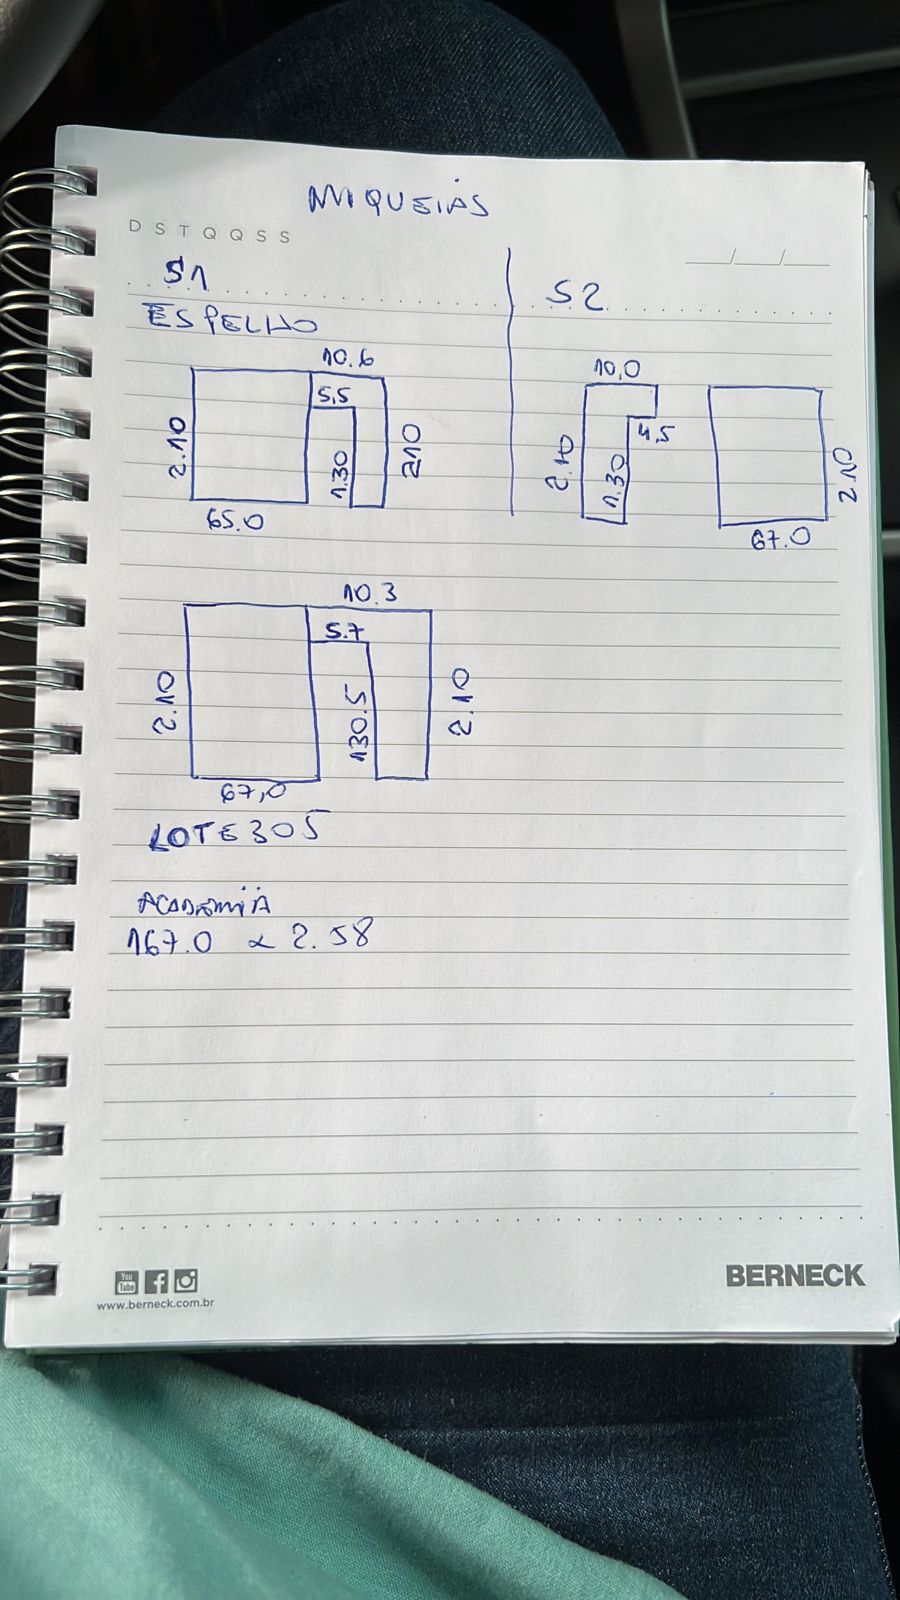 MIQUEIAS
D S T Q Q S S
S1
ESPELHO
10.6
5,5
2.10
1.30
210
65.0
S2
10,0
4,5
2.10
1.30
2.10
67.0
10.3
5.7
2.10
130.5
2.10
67,0
LOTE 305
ACADEMIA
167.0 x 2.58
You Tube
www.berneck.com.br
BERNECK